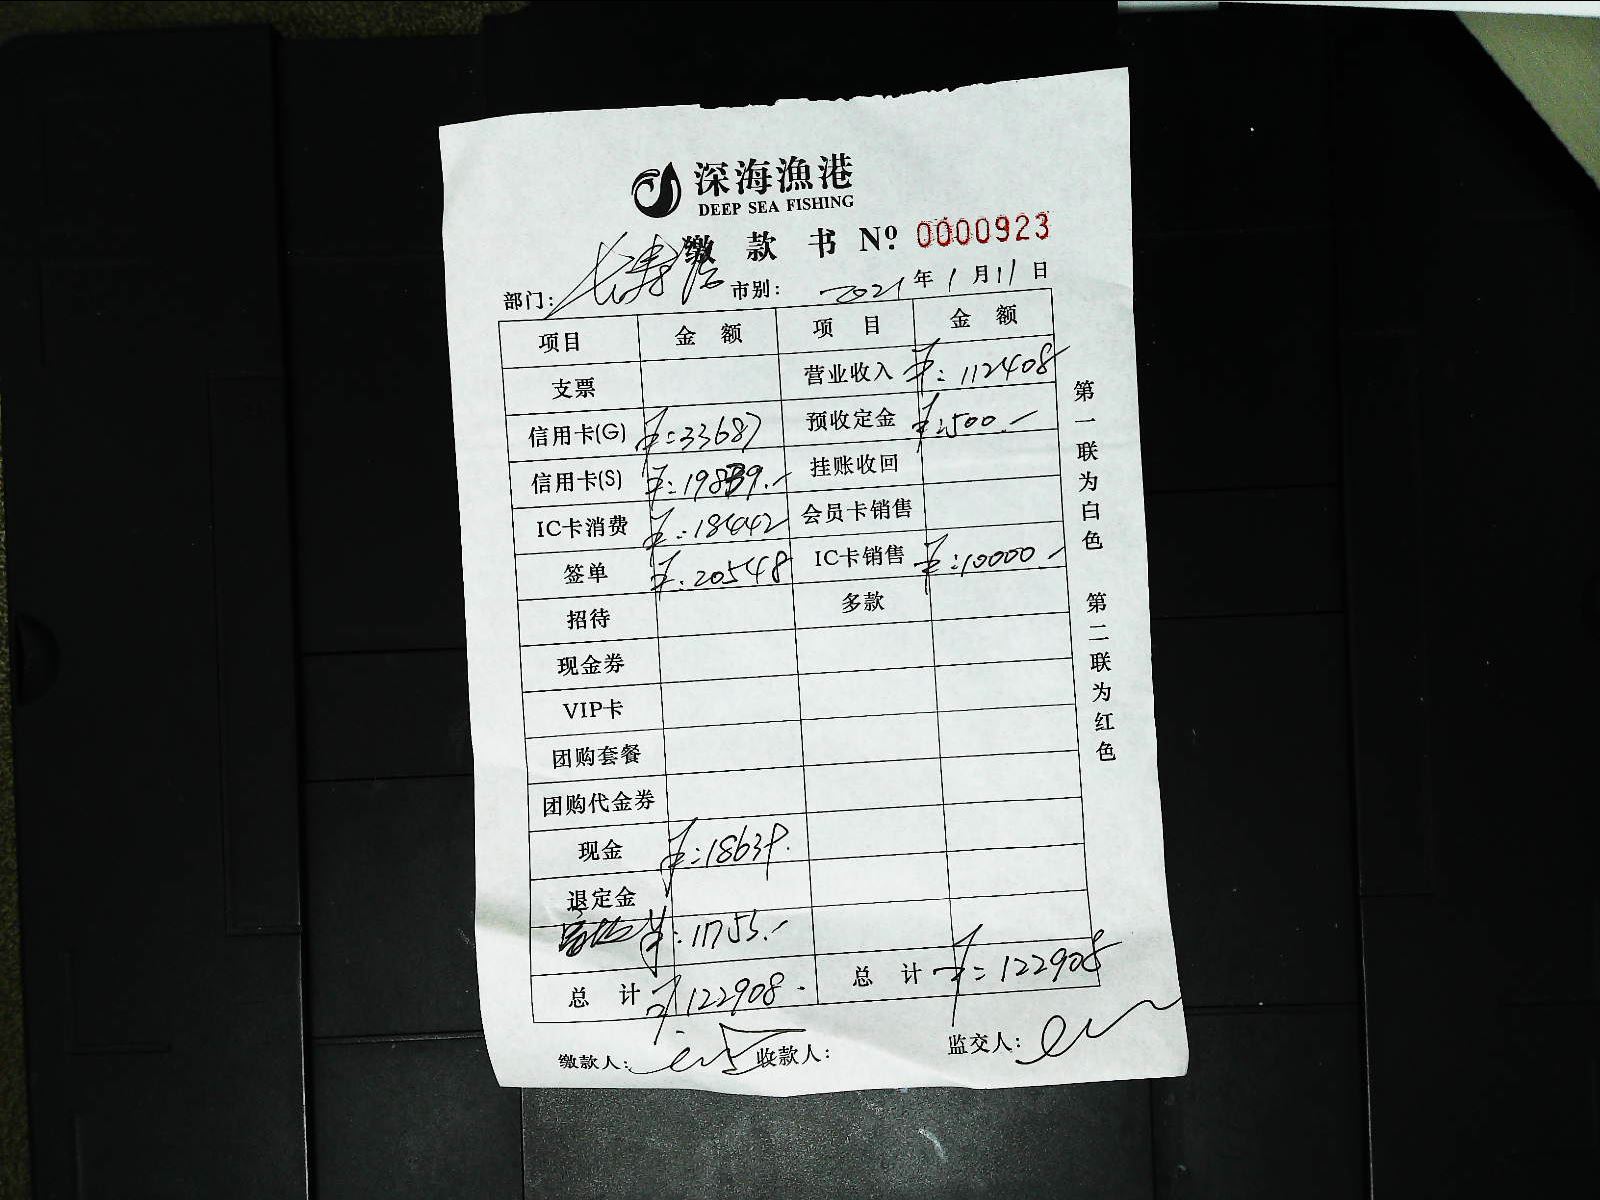 深海漁港
DEEP SEA FISHING
缴 款 书 Nº 0000923
部门： 市别： 2021 年 1 月 11 日
项目 金 额 项 目 金 额
支票 营业收入 ¥：112408
信用卡(G) ¥：33687 预收定金 ¥：500.-
信用卡(S) ¥：19839.- 挂账收回
IC卡消费 ¥：18442 会员卡销售
签单 ¥：20548 IC卡销售 ¥：10000.-
招待 多款
现金券
VIP卡
团购套餐
团购代金券
现金 ¥：18639.
退定金
¥：11753.-
总 计 ¥：122908.- 总 计 ¥：122908
缴款人： 收款人： 监交人：
第一联为白色 第二联为红色